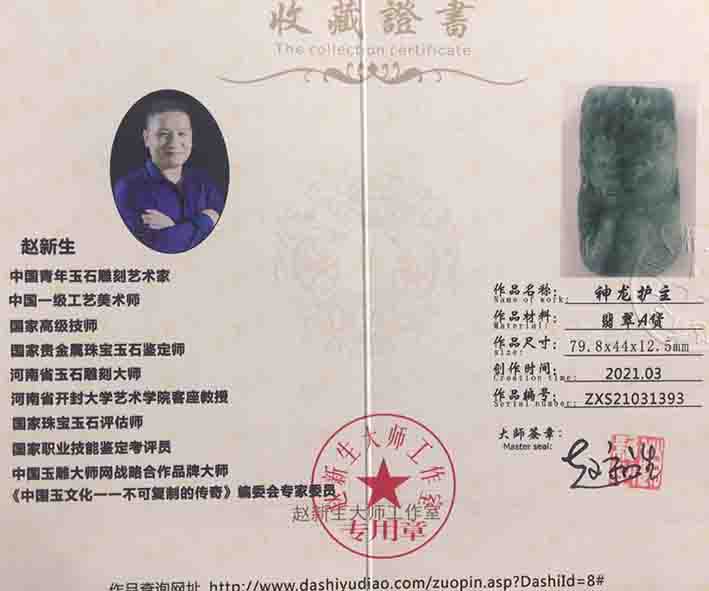 收藏證書
The collection certificate
赵新生
中国青年玉石雕刻艺术家
中国一级工艺美术师
国家高级技师
国家贵金属珠宝玉石鉴定师
河南省玉石雕刻大师
河南省开封大学艺术学院客座教授
国家珠宝玉石评估师
国家职业技能鉴定考评员
中国玉雕大师网战略合作品牌大师
《中国玉文化一一不可复制的传奇》编委会专家委员
赵新生大师工作室
赵新生大师工作室
专用章
作品名称: 神龙护主
Name of work:
作品材料: 翡翠A货
Material:
作品尺寸: 79.8x44x12.5mm
size:
创作时间: 2021.03
Creation time:
作品编号: ZXS21031393
Serial number:
大師签章:
Master seal:
作品查询网址 http://www.dashiyudiao.com/zuopin.asp?DashiId=8#